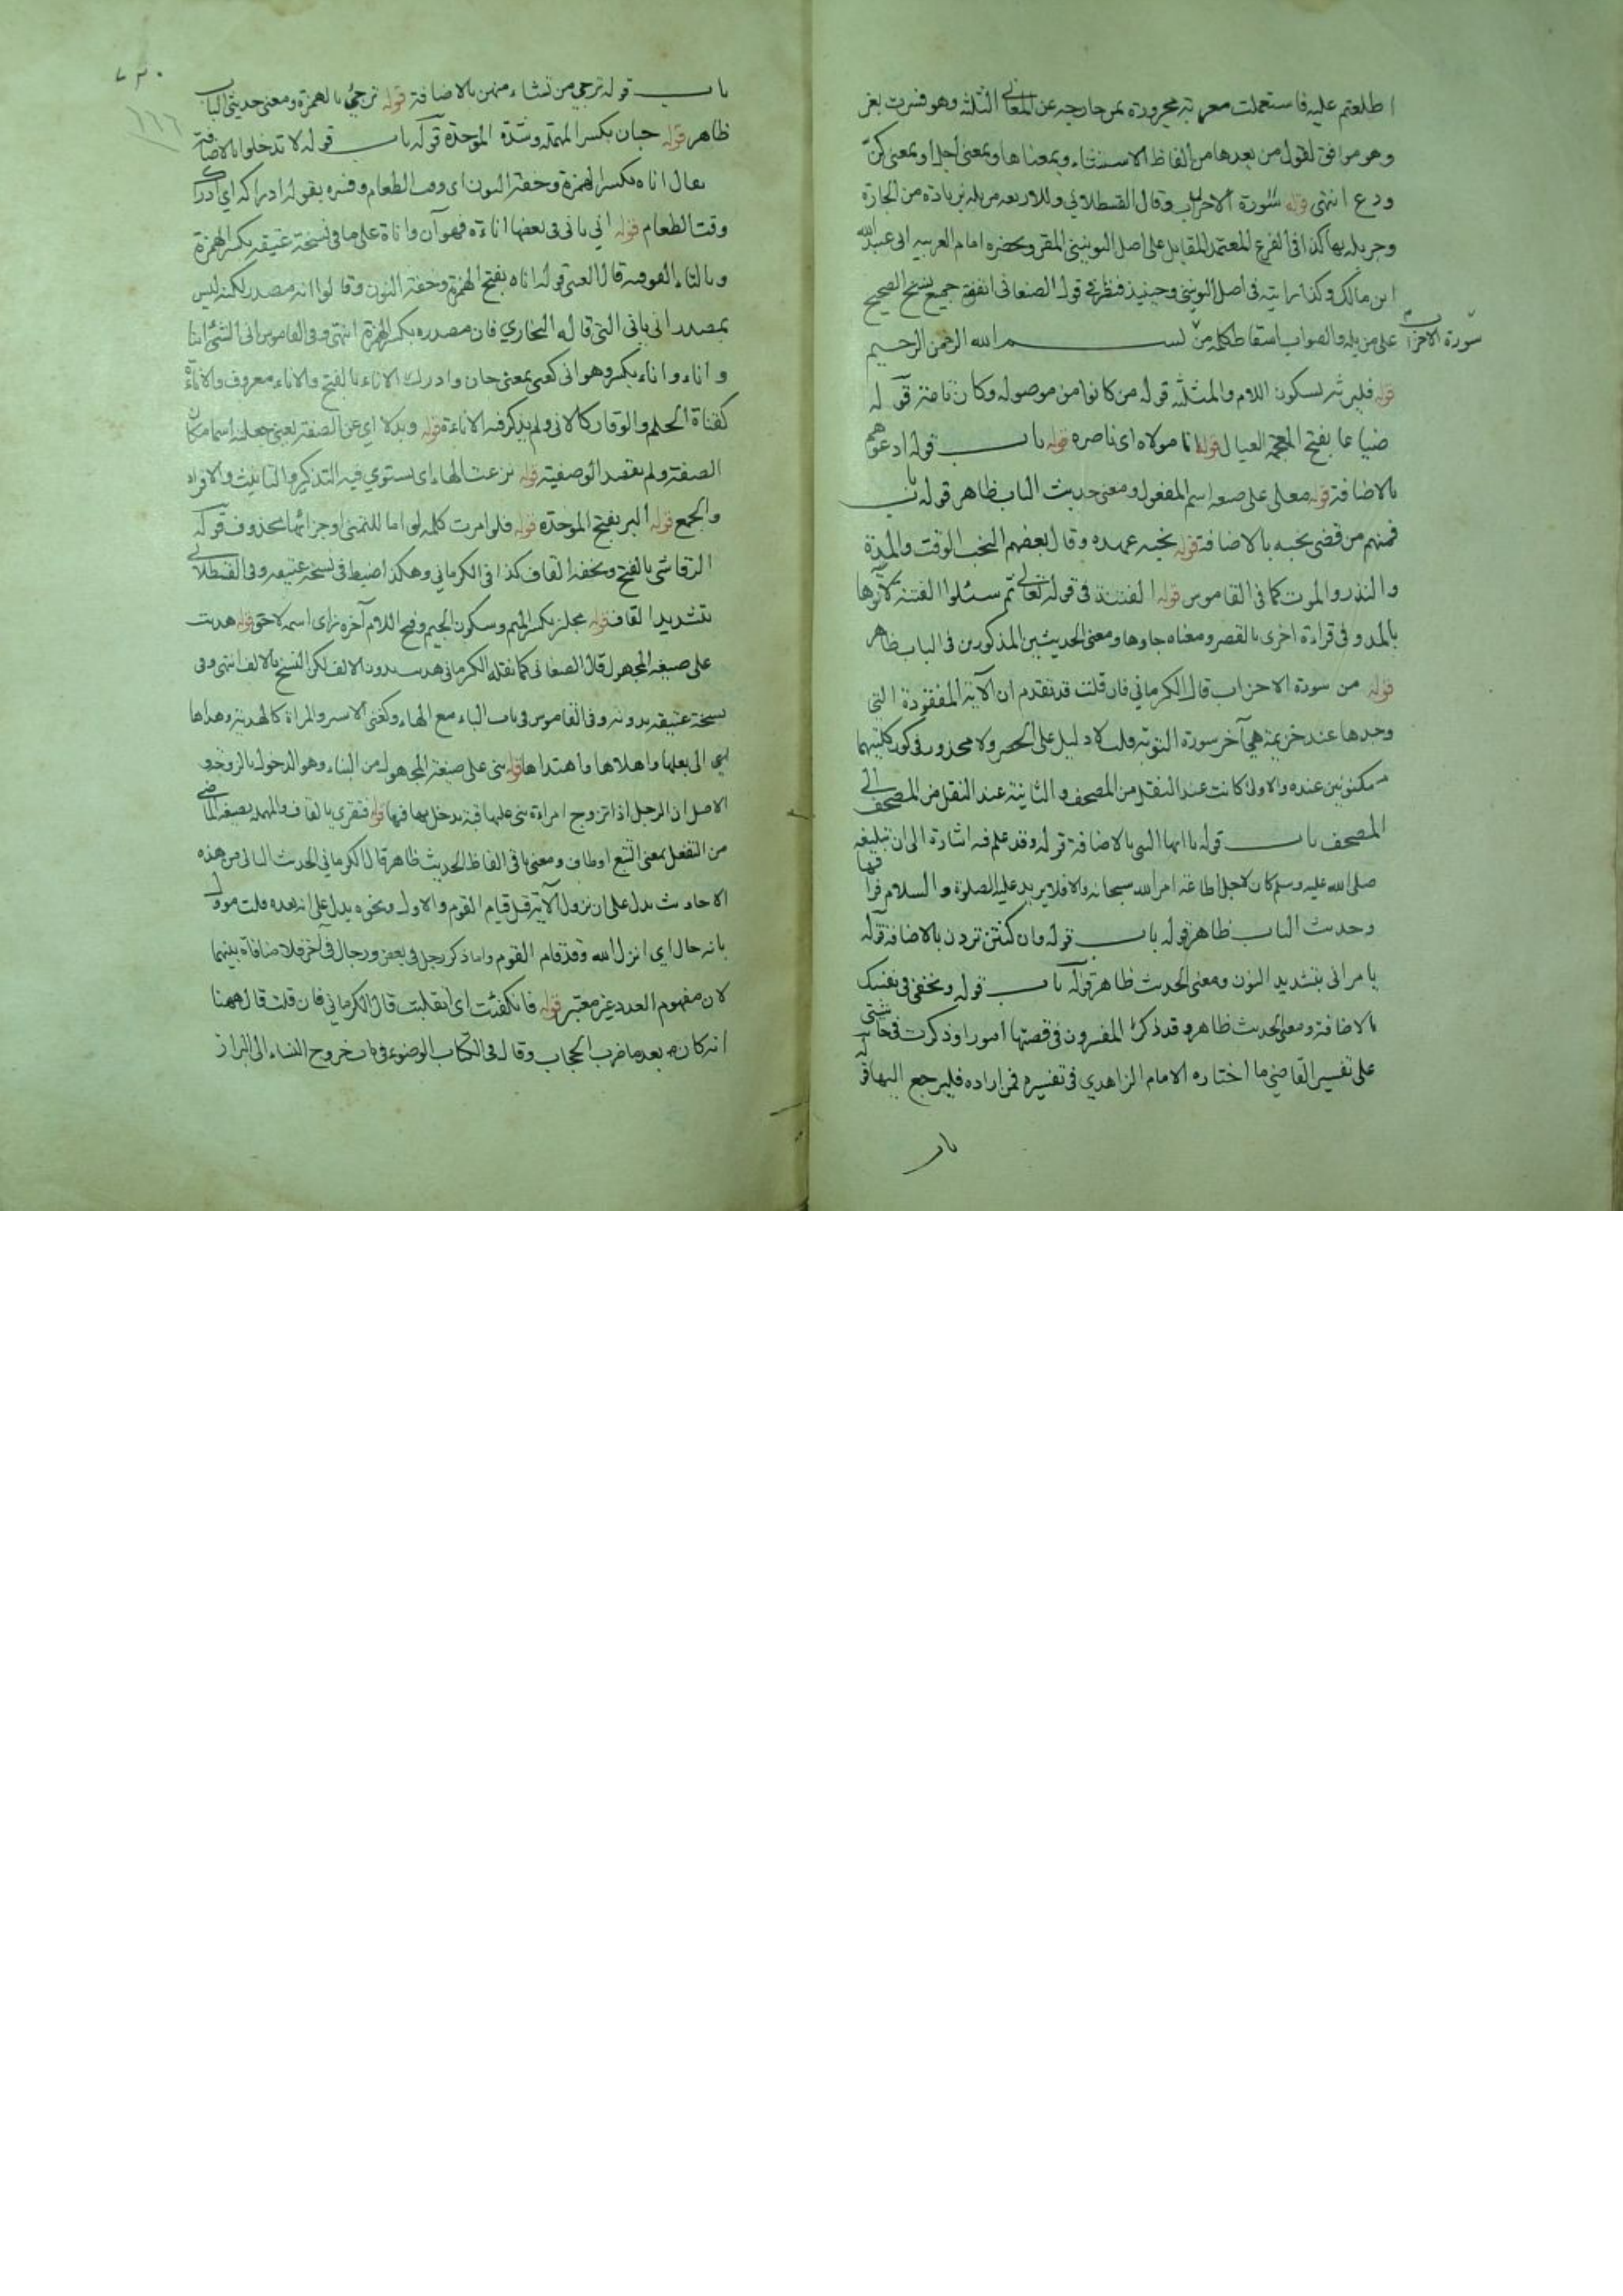 اطلعتم عليه فاستعملت معربة مجرورة بمن خارجه عن المعاني الثلثة وهو فسرت بغير
وهو موافق لقول من يعدها من الفاظ الاستثناء وبمعناها وبمعنى اجل او بمعنى كف
ودع انتهى قوله سورة الاحزاب وقال القسطلاني وللاربعة من بله بزيادة من الجارة
وجر بله بها كذا في الفرع المعتمد المقابل على اصل اليونيني المقرو بحضرة امام العربية ابي عبد الله
ابن مالك وكذا رايته في اصل اليونيني وحينئذ فنظر في قول الصنعاني اتفقت جميع نسخ الصحيح
على من بله والصواب اسقاط كلمة من بسم الله الرحمن الرحيم
سورة الاحزاب
قوله فليرثه بسكون اللام والمثلثة قوله من كانوا من موصولة وكان تامة قوله
ضياعا بفتح المعجمة العيال قوله انا مولاه اي ناصره قوله باب قوله ادعوهم
بالاضافة قوله معلى على صيغة اسم المفعول ومعنى حديث الباب ظاهر قوله باب
فمنهم من قضى نحبه بالاضافة قوله نحبه عهده وقال بعضهم النحب الوقت والمدة
والنذر والموت كما في القاموس قوله الفتنة في قوله تعالى ثم سئلوا الفتنة لآتوها
بالمد وفي قراءة اخرى بالقصر ومعناه جاوها ومعنى الحديثين المذكورين في الباب ظاهر
قوله من سورة الاحزاب قال الكرماني فان قلت قد تقدم ان الآية المفقودة التي
وجدها عند خزيمة هي آخر سورة التوبة قلت لا دليل على الحصر ولا محذور في كون كلتيهما
مكتوبتين عنده والاولى كانت عند النقل من المصحف والثانية عند النقل من المصحف الى
المصحف باب قوله يا ايها النبي بالاضافة قوله وقد علم فيه اشارة الى ان تبليغه
صلى الله عليه وسلم كان لاجل اطاعة امر الله سبحانه والا فلا يريد عليه الصلوة والسلام فراقها
وحديث الباب ظاهر قوله باب قوله وان كنتن تردن بالاضافة قوله
يامراني بتشديد النون ومعنى الحديث ظاهر قوله باب قوله وتخفي في نفسك
بالاضافة ومعنى الحديث ظاهر وقد ذكر المفسرون في قصتها امورا وذكرت في حاشيتي
على تفسير القاضي ما اختاره الامام الزاهدي في تفسيره فمن اراده فليرجع اليها قوله
باب
باب قوله ترجي من تشاء منهن بالاضافة قوله ترجئ بالهمزة ومعنى حديثي الباب
ظاهر قوله حبان بكسر المهملة وشدة الموحدة قوله باب قوله لا تدخلوا بالاضافة
يقال اناه بكسر الهمزة وخفة النون اي وقت الطعام وفسره بقوله ادراكه اي ادراك
وقت الطعام قوله اني ياني في بعضها اناءة فهو آن واناة على ما في نسخة عتيقة بكسر الهمزة
وبالتاء الفوقية قال العيني قوله اناه بفتح الهمزة وخفة النون وقالوا انه مصدر لكنه ليس
بمصدر انى ياني التي قاله البخاري فان مصدره بكسر الهمزة انتهى وفي القاموس انى الشئ انيا
واناء واناء بكسر وهو اني كغني بمعنى حان وادرك الاناء بالفتح والاناء معروف والاناة
كقناة الحلم والوقار كالانى ولم يذكر فيه الاناءة قوله وبدلا اي عن الصفة يعني جعلته اسما مكان
الصفة ولم تقصد الوصفية قوله نزعت الهاء اي يستوي فيه التذكير والتانيث والافراد
والجمع قوله البر بفتح الموحدة قوله فلو امرت كلمة لو اما للتمني او جزائها محذوف قوله
الرقاشي بالفتح وبخفة القاف كذا في الكرماني وهكذا ضبط في نسخة عتيقة وفي القسطلاني
بتشديد القاف قوله مجلز بكسر الميم وسكون الجيم وفتح اللام آخره زاى اسمه لاحق قوله هديت
على صيغة المجهول قال الصغاني كما نقله الكرماني هديت بدون الالف لكن النسخ بالالف انتهى وفي
نسخة عتيقة بدونه وفي القاموس في باب الياء مع الهاء وكغني الاسير والمراة كالهدية وهداها
الى بعلها واهداها واهتداها قوله بنى على صيغة المجهول من البناء وهو الدخول بالزوجة و
الاصل ان الرجل اذا تزوج امراة بنى عليها قبة يدخل بها فيها قوله فتقرى بالقاف والمهملة بصيغة الماضي
من التفعل بمعنى التتبع اوطاف ومعنى باقي الفاظ الحديث ظاهر قال الكرماني الحديث الثاني من هذه
الاحاديث يدل على ان نزول الآية قبل قيام القوم والاول ونحوه يدل على انه بعده قلت موول
بانه حال اي انزل الله وقد قام القوم واما ذكر رجل في بعض ورجال في آخر فلا منافاة بينهما
لان مفهوم العدد غير معتبر قوله فانكفئت اي انقلبت قال الكرماني فان قلت قال ههنا
انه كان بعد ما ضرب الحجاب وقال في الكتاب الوضوء في باب خروج النساء الى البراز